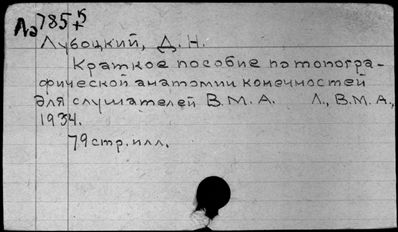 Лэ 785+5
Лубоцкий, Д. Н.
Краткое пособие по топогра-
фической анатомии конечностей
для слушателей В.М.А. Л., В.М.А.,
1934.
79 стр. илл.